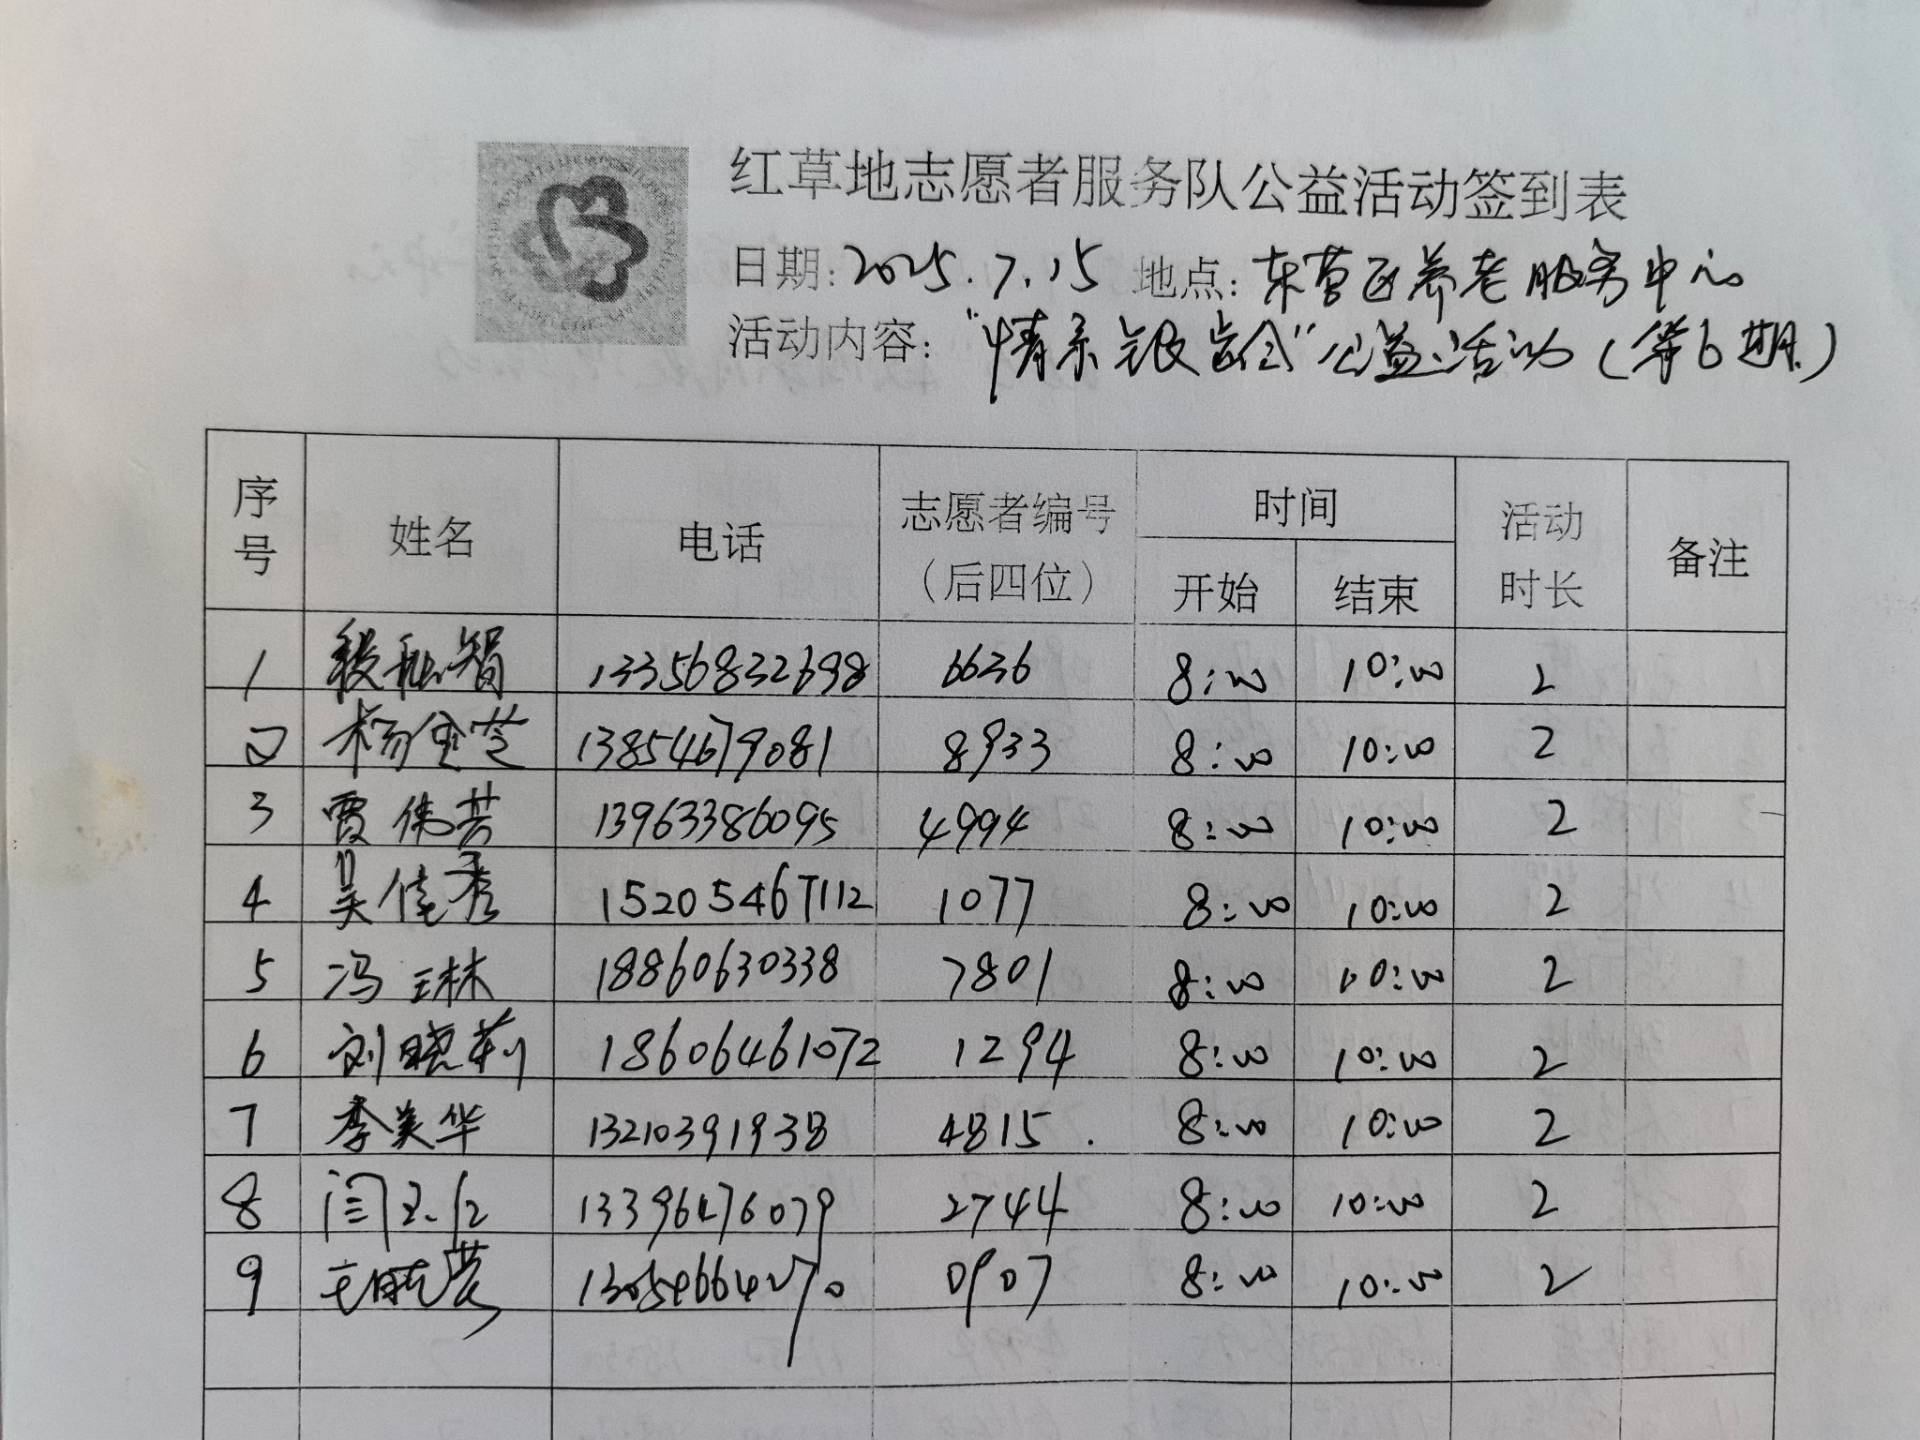 红草地志愿者服务队公益活动签到表
日期:2025.7.15 地点:东营区养老服务中心
活动内容:“情系银龄”公益活动(第6期)
序号 姓名 电话 志愿者编号(后四位) 时间 开始 结束 活动时长 备注
1 13356832698 6636 8:00 10:00 2
2 杨金芝 13854679081 8933 8:00 10:00 2
3 贾伟芳 13963386095 4994 8:00 10:00 2
4 吴佳秀 15205467112 1077 8:00 10:00 2
5 冯琳 18860630338 7801 8:00 10:00 2
6 刘晓莉 18606461072 1294 8:00 10:00 2
7 李美华 13210391938 4815. 8:00 10:00 2
8 闫 13396476079 2744 8:00 10:00 2
9 13054664270 0907 8:00 10:00 2